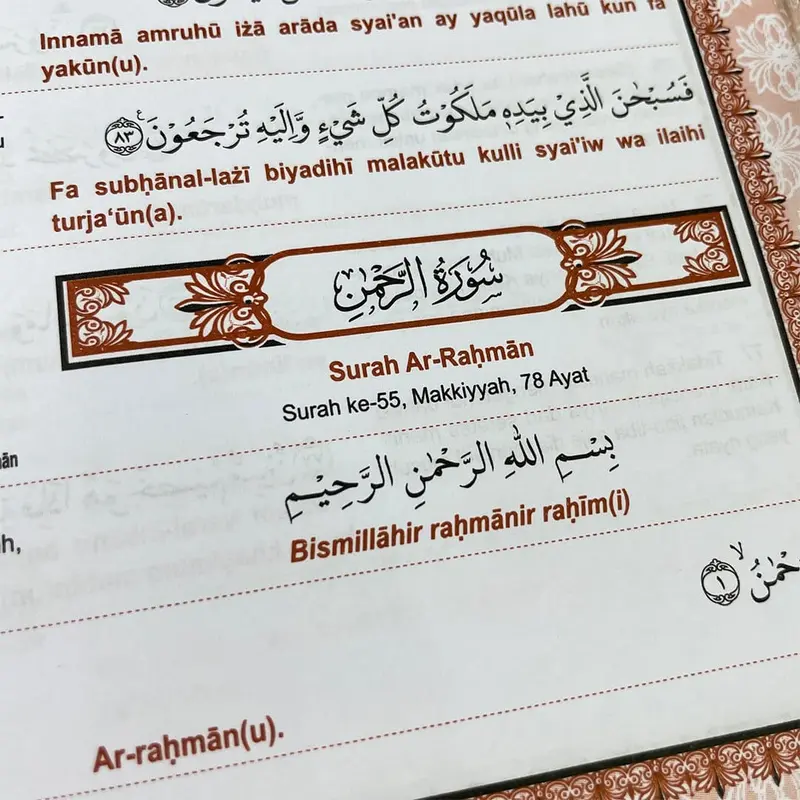 Innamā amruhū iżā arāda syai'an ay yaqūla lahū kun fa
yakūn(u).
فَسُبْحٰنَ الَّذِيْ بِيَدِهٖ مَلَكُوْتُ كُلِّ شَيْءٍ وَّاِلَيْهِ تُرْجَعُوْنَ ࣖ ٨٣
Fa subḥānal-lażī biyadihī malakūtu kulli syai'iw wa ilaihi
turja‘ūn(a).
سُوْرَةُ الرَّحْمٰنِ
Surah Ar-Raḥmān
Surah ke-55, Makkiyyah, 78 Ayat
بِسْمِ اللّٰهِ الرَّحْمٰنِ الرَّحِيْمِ
Bismillāhir raḥmānir raḥīm(i)
١
Ar-raḥmān(u).